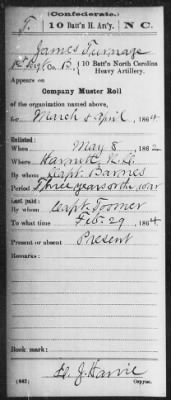 (Confederate.)
T. 10 Batt'n H. Art'y. N C.
James Turnage
Co. B. 10 Batt'n North Carolina
Heavy Artillery.
Appears on
Company Muster Roll
of the organization named above,
for March & April, 1864.
Enlisted:
When May 8, 1862
Where Harnett N.C.
By whom Capt. Barnes
Period Three years or the war
Last paid:
By whom Capt. Toomer
To what time Feb. 29, 1864.
Present or absent Present
Remarks:
Book mark:
(642) Copyist.